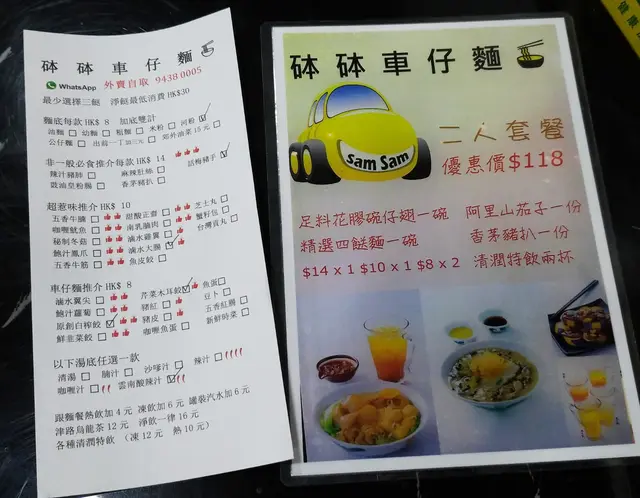 砵砵車仔麵
WhatsApp 外賣自取 9438 0005
最少選擇三餸 淨餸最低消費 HK$30
麵底每款 HK$ 8 加底雙計
油麵 幼麵 粗麵 米粉 河粉
公仔麵 出前一丁加三元 郊外油菜 15 元
非一般必食推介每款 HK$ 14
辣汁豬肺 麻辣肚絲 話梅豬手
豉油皇粉腸 香茅豬扒
超惹味推介 HK$ 10
五香牛腩 甜酸正齋 芝士丸
咖喱魷魚 南乳腩肉 蟹籽包
秘制冬菇 滷水雞翼 台灣貢丸
鮑汁鳳爪 滷水大腸
五香牛筋 魚皮餃
車仔麵推介 HK$ 8
滷水翼尖 芹菜木耳餃 魚蛋
鮑汁蘿蔔 豬紅 豆卜
原創白榨餃 豬皮 五香紅腸
鮮韭菜餃 咖喱魚蛋 新鮮時菜
以下湯底任選一款
清湯 腩汁 沙嗲汁 辣汁
咖喱汁 雲南酸辣汁
跟麵餐熱飲加 4 元 凍飲加 6 元 罐裝汽水加 6 元
津路烏龍茶 12 元 淨飲一律 16 元
各種清潤特飲 (凍 12 元 熱 10 元)
砵砵車仔麵
Sam Sam
二人套餐
優惠價$118
足料花膠碗仔翅一碗 阿里山茄子一份
精選四餸麵一碗 香茅豬扒一份
$14 x 1 $10 x 1 $8 x 2 清潤特飲兩杯